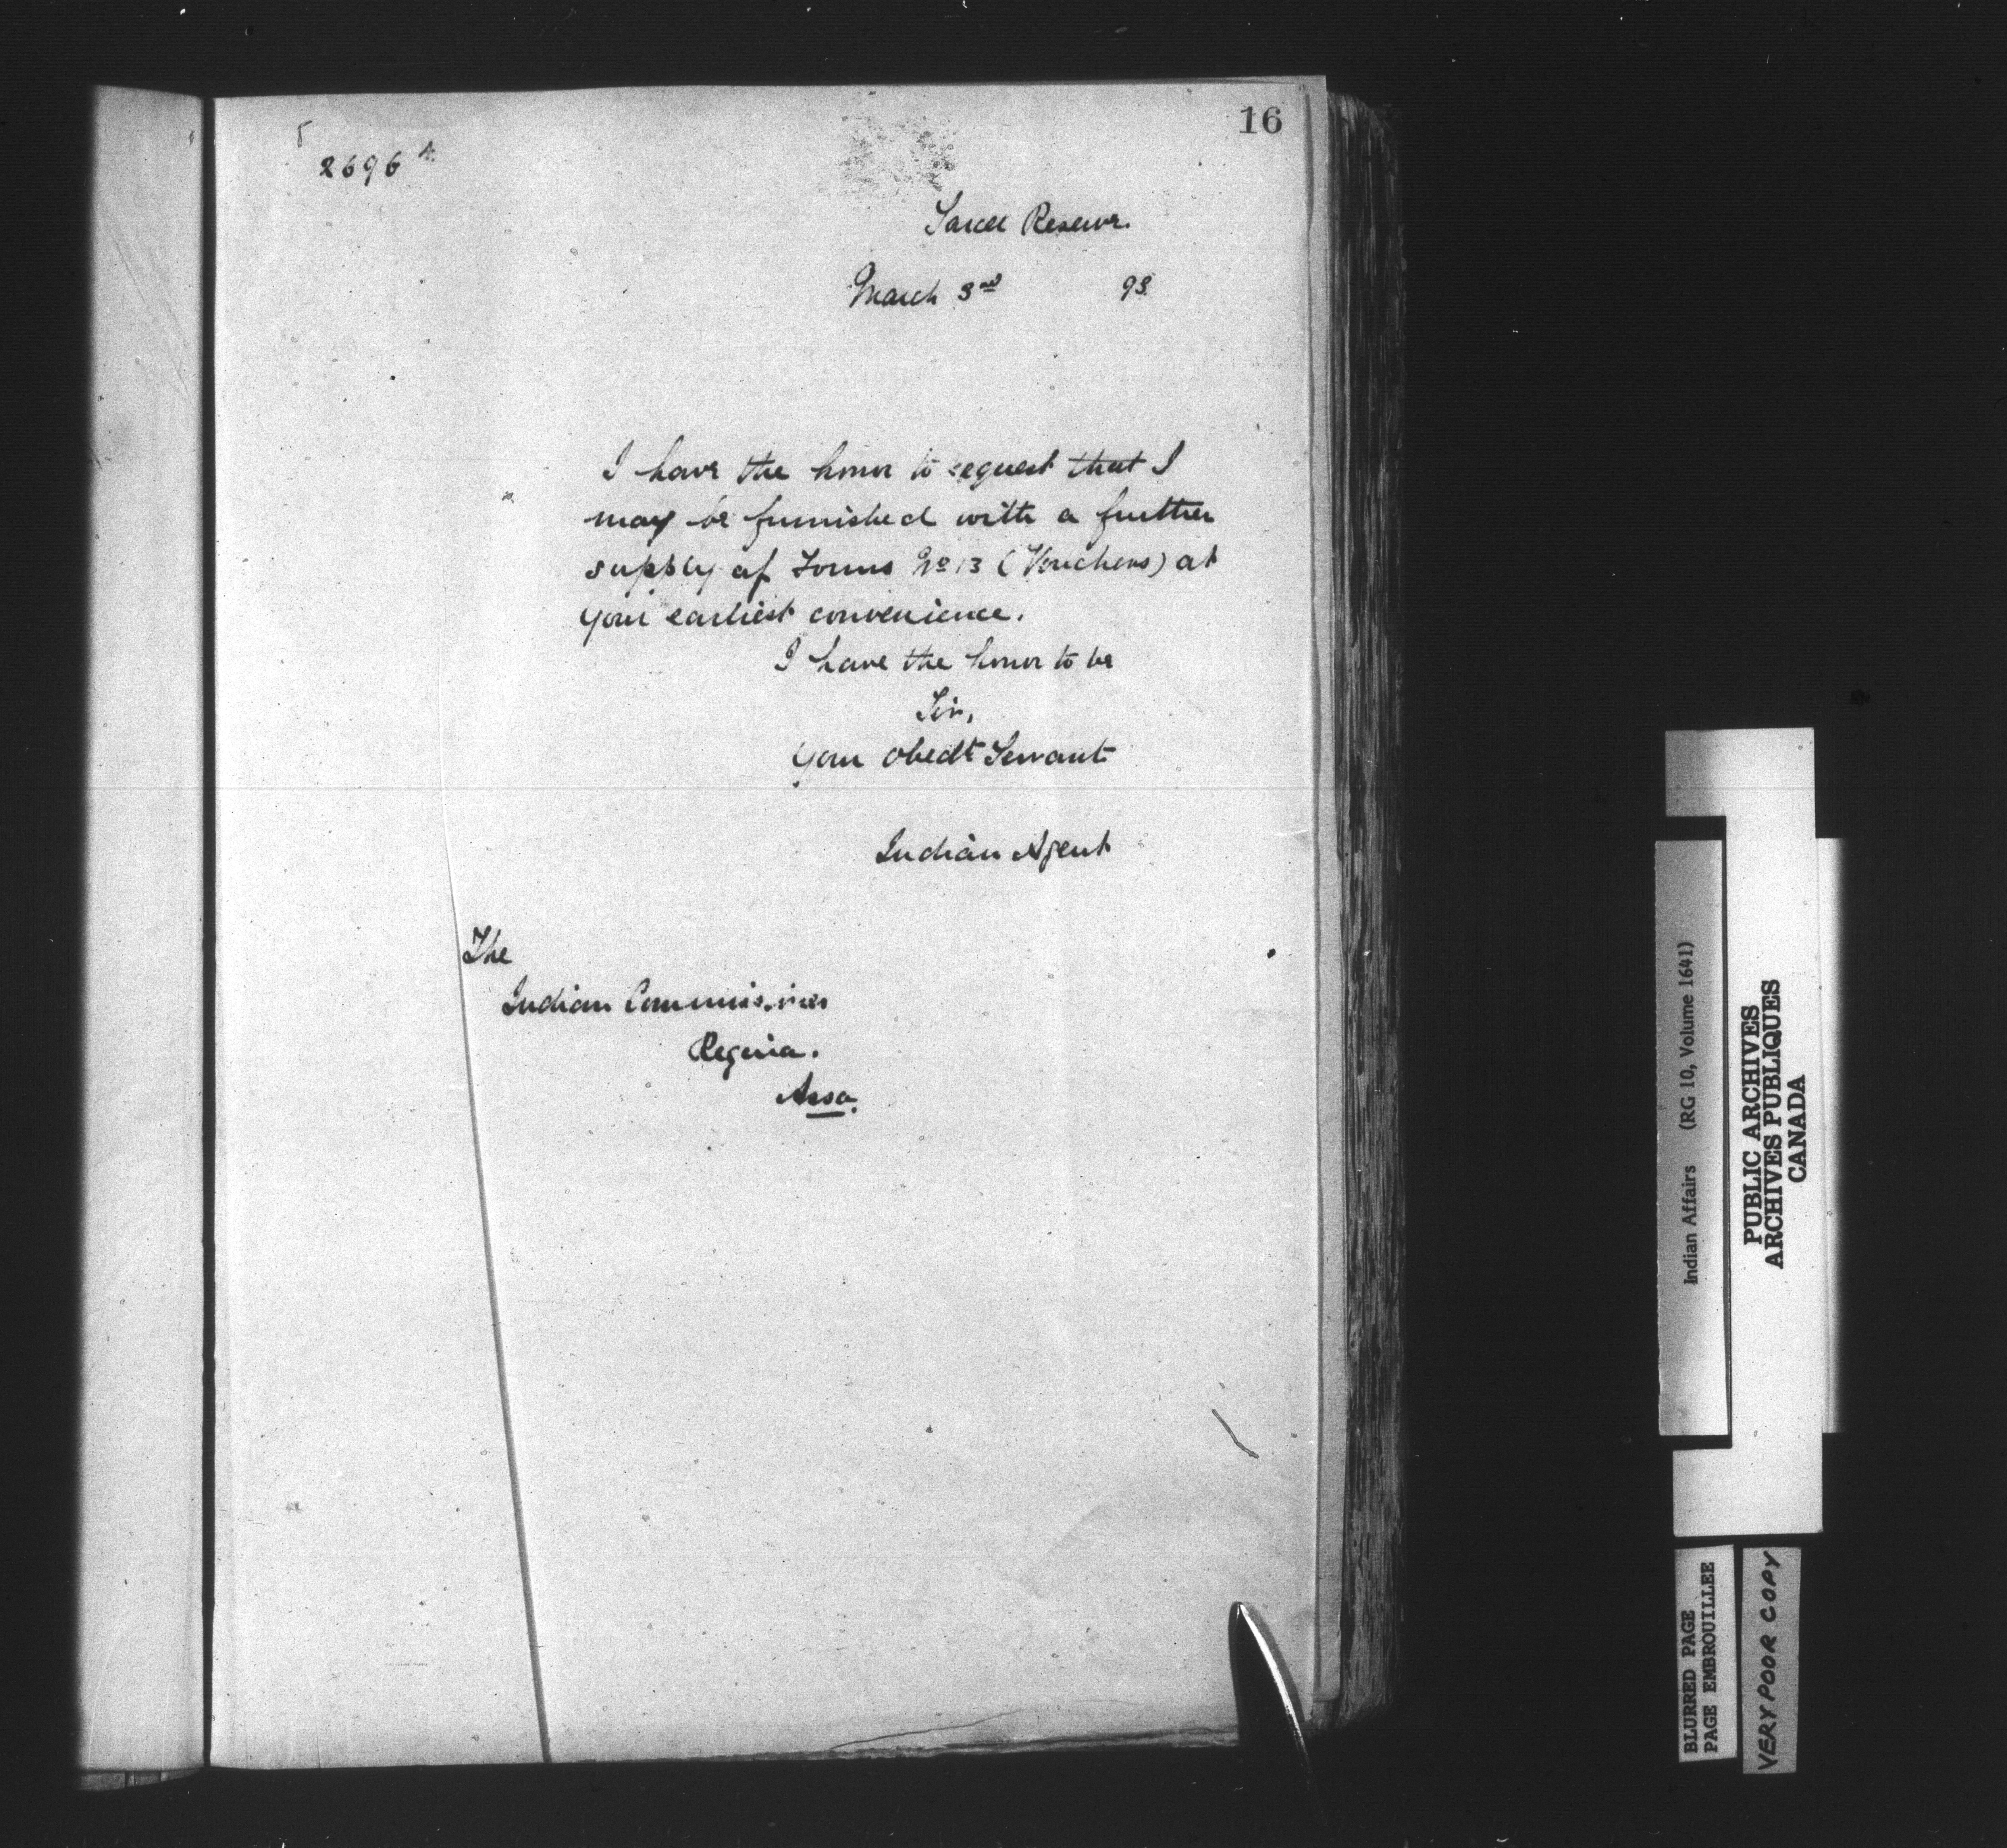 16
2696
Sarcee Reserve.
March 3rd 93
I have the honor to request that I
may be furnished with a further
supply of Forms No 13 (Vouchers) at
your earliest convenience.
I have the honor to be
Sir,
Your Obedt Servant
Indian Agent
The
Indian Commissioner
Regina.
Assa.
Indian Affairs (RG 10, Volume 1641)
PUBLIC ARCHIVES
ARCHIVES PUBLIQUES
CANADA
BLURRED PAGE
PAGE EMBROUILLEE
VERY POOR COPY